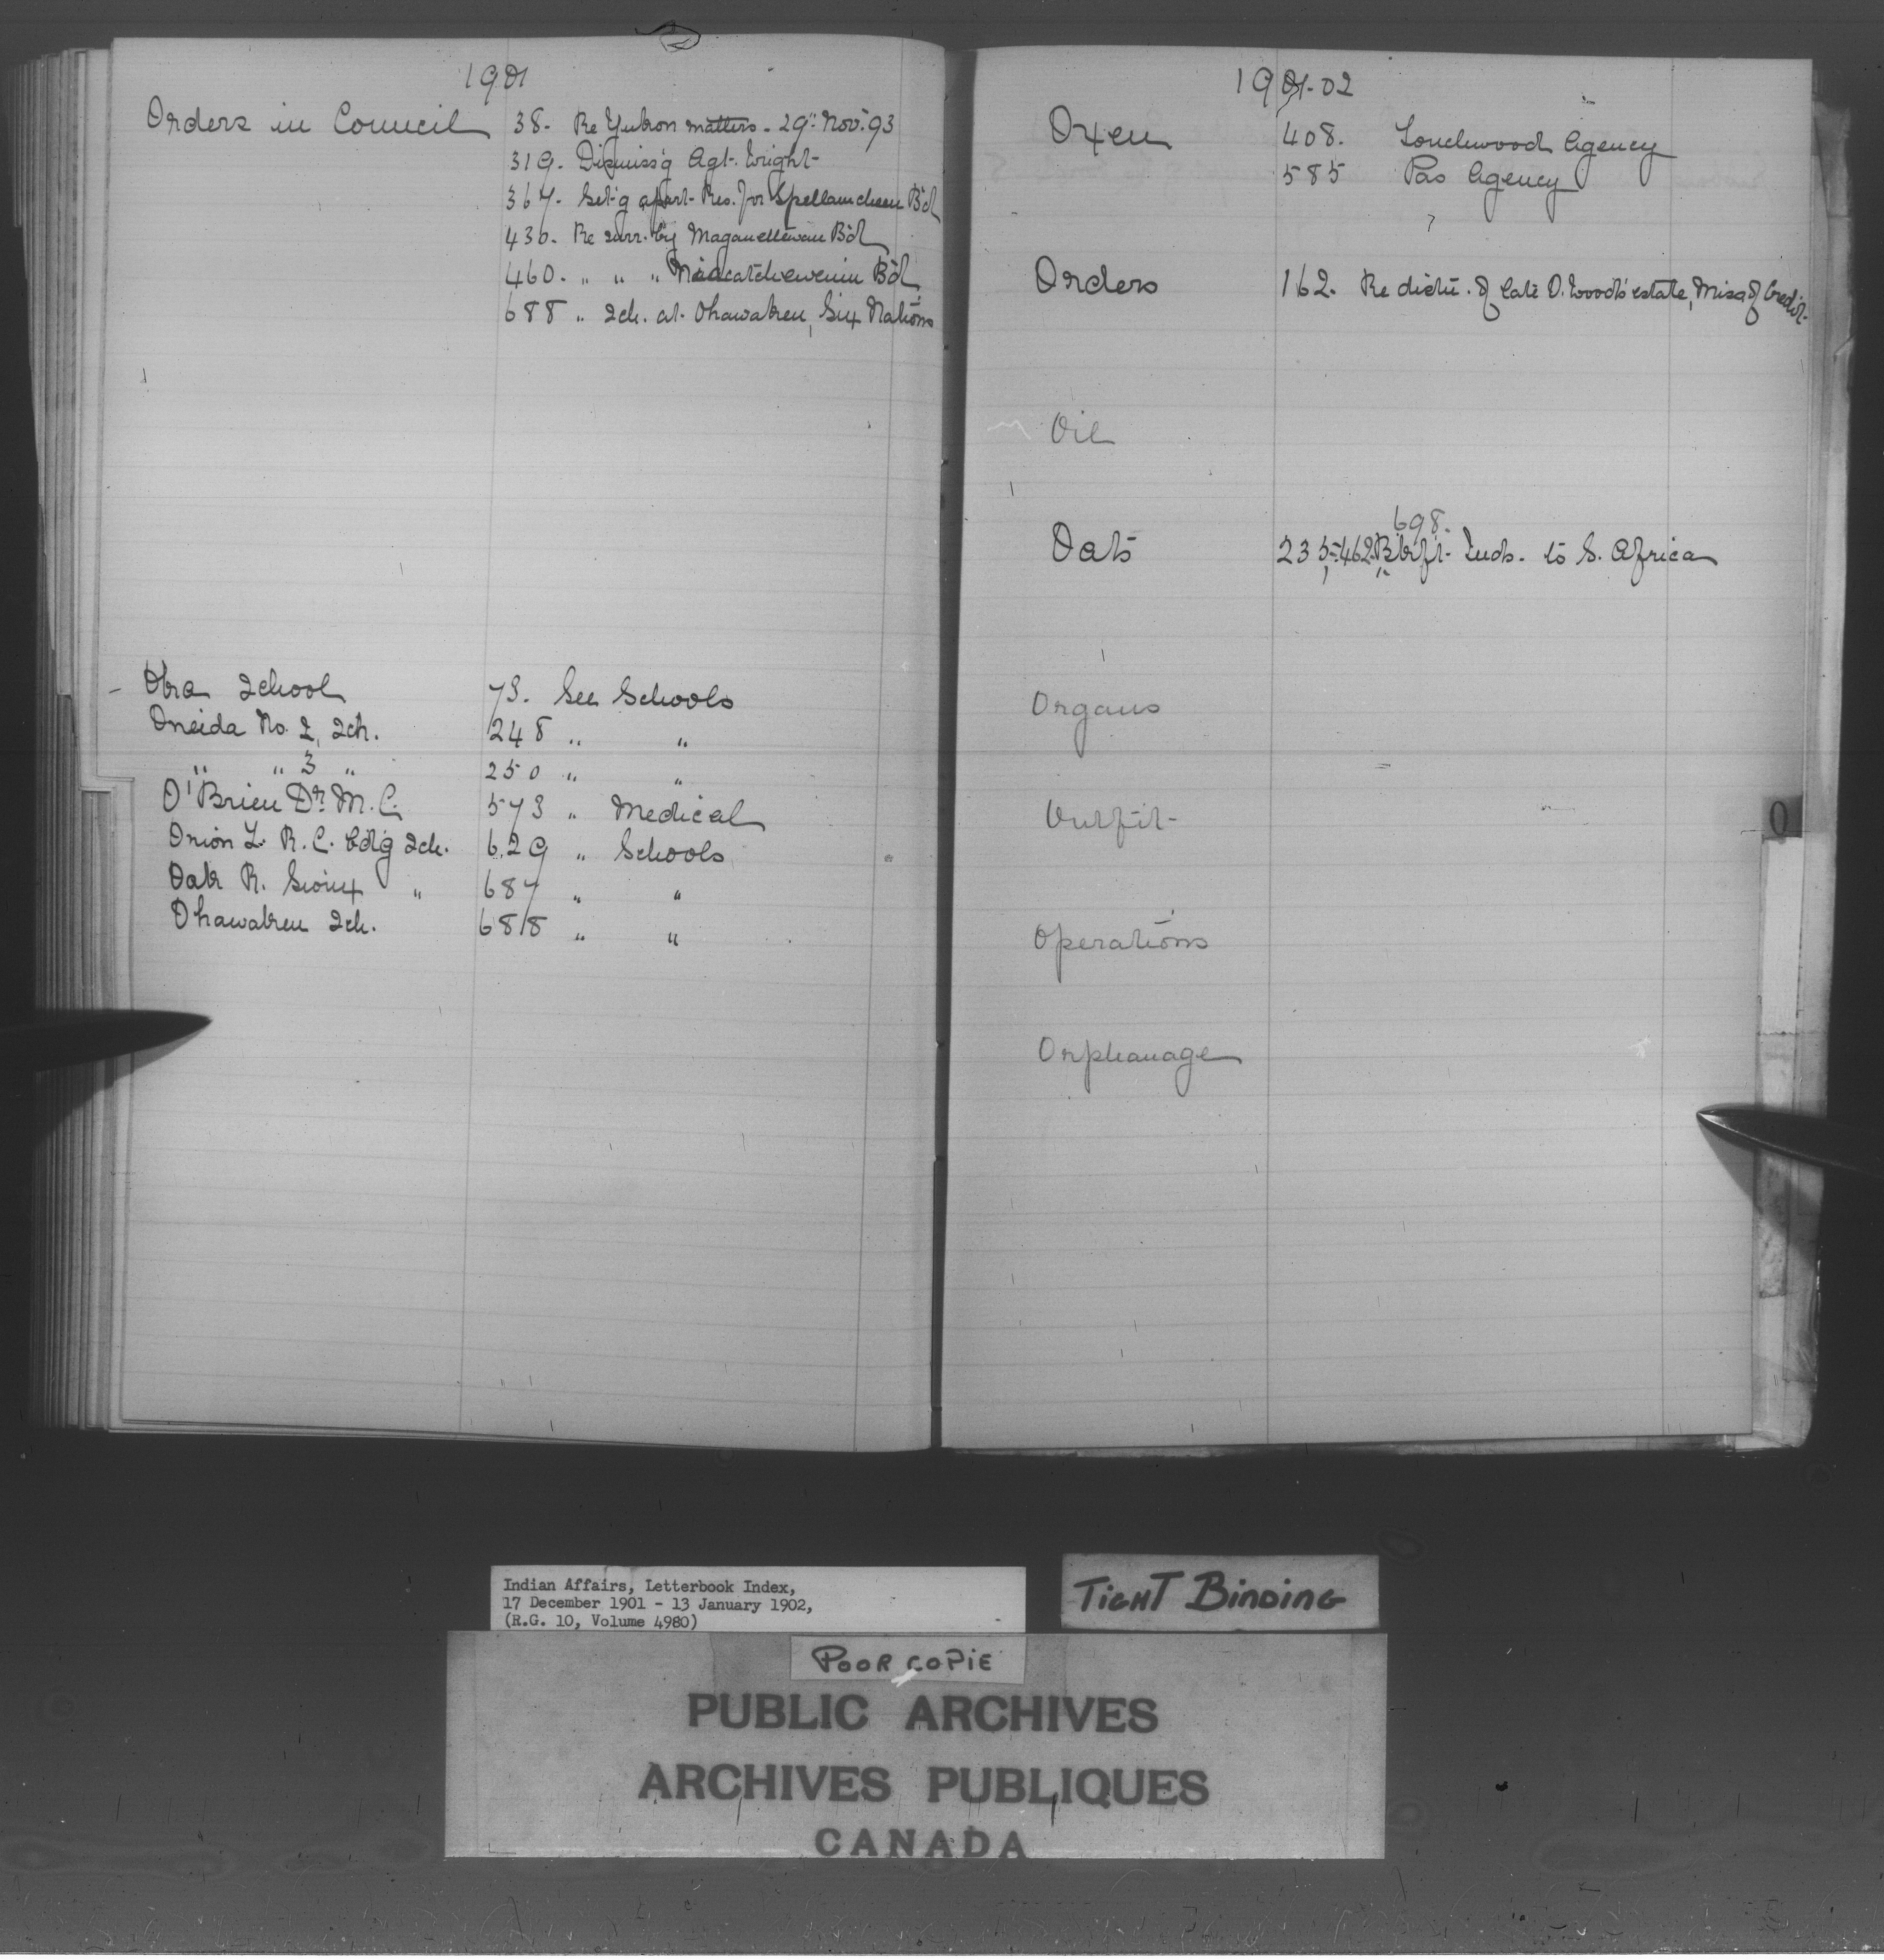 1901
Orders in Council 38. Re Yukon matters. 29" Nov. 93
319. Dismiss'g Agt. Wright
367. Set'g apart Res. for Spellamcheen B'd
430. Re surr. by Maganettewan B'd
460. " " " B'd
688 " Sch. at Ohsweken, Six Nations
School 73. See Schools
Oneida No. 2, Sch. 248 " "
" " 3 " 250 " "
O'Brien Dr. M. C. 573 " Medical
Onion L. R. C. Bd'g Sch. 629 " Schools
Oak R. Sioux " 687 " "
Sch. 688 " "
1901-02
Oxen 408. Touchwood Agency
585 Pas Agency
Orders 162. Re distu. of late D. Wood's estate, Miss. of Credit
Oil
698.
Oats 235, 462. Inds. to S. Africa
Organs
Outfit
Operations
Orphanage
O
Indian Affairs, Letterbook Index,
17 December 1901 - 13 January 1902,
(R.G. 10, Volume 4980)
TIGHT BINDING
POOR COPIE
PUBLIC ARCHIVES
ARCHIVES PUBLIQUES
CANADA